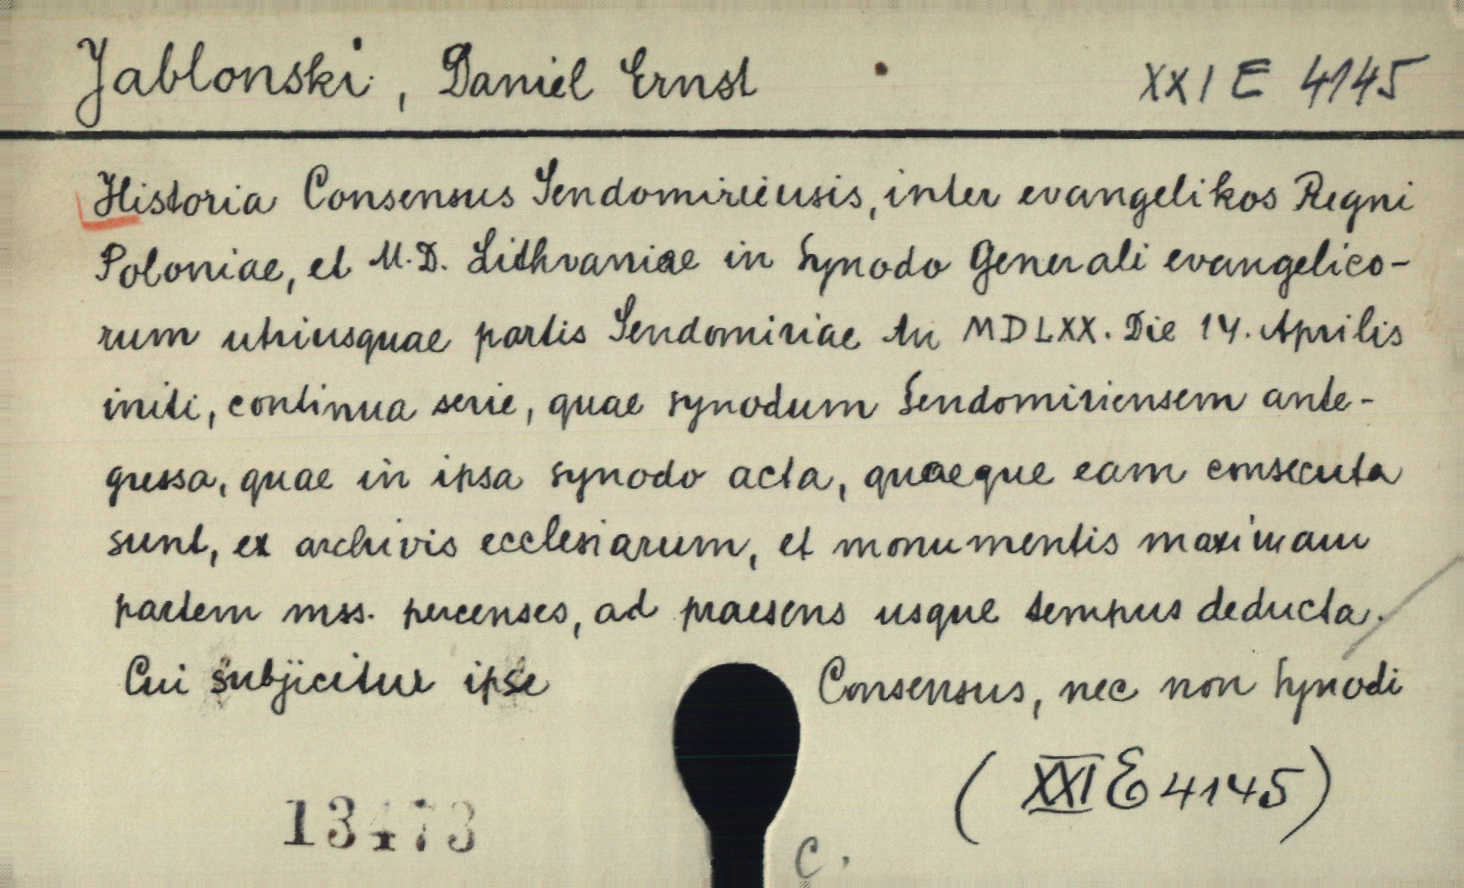 Jablonski, Daniel Ernst XXI E 4145
Historia Consensus Sendomiriensis, inter evangelikos Regni
Poloniae, et M.D. Lithvaniae in Synodo Generali evangelico-
rum utriusquae partis Sendomiriae An MDLXX. Die 14. Aprilis
initi, continua serie, quae synodum Sendomiriensem ante-
gressa, quae in ipsa synodo acta, quaeque eam consecuta
sunt, ex archivis ecclesiarum, et monumentis maximam
partem mss. percenses, ad praesens usque tempus deducta.
Cui subjicitur ipse Consensus, nec non Synodi
(XXI E 4145)
13473
C.